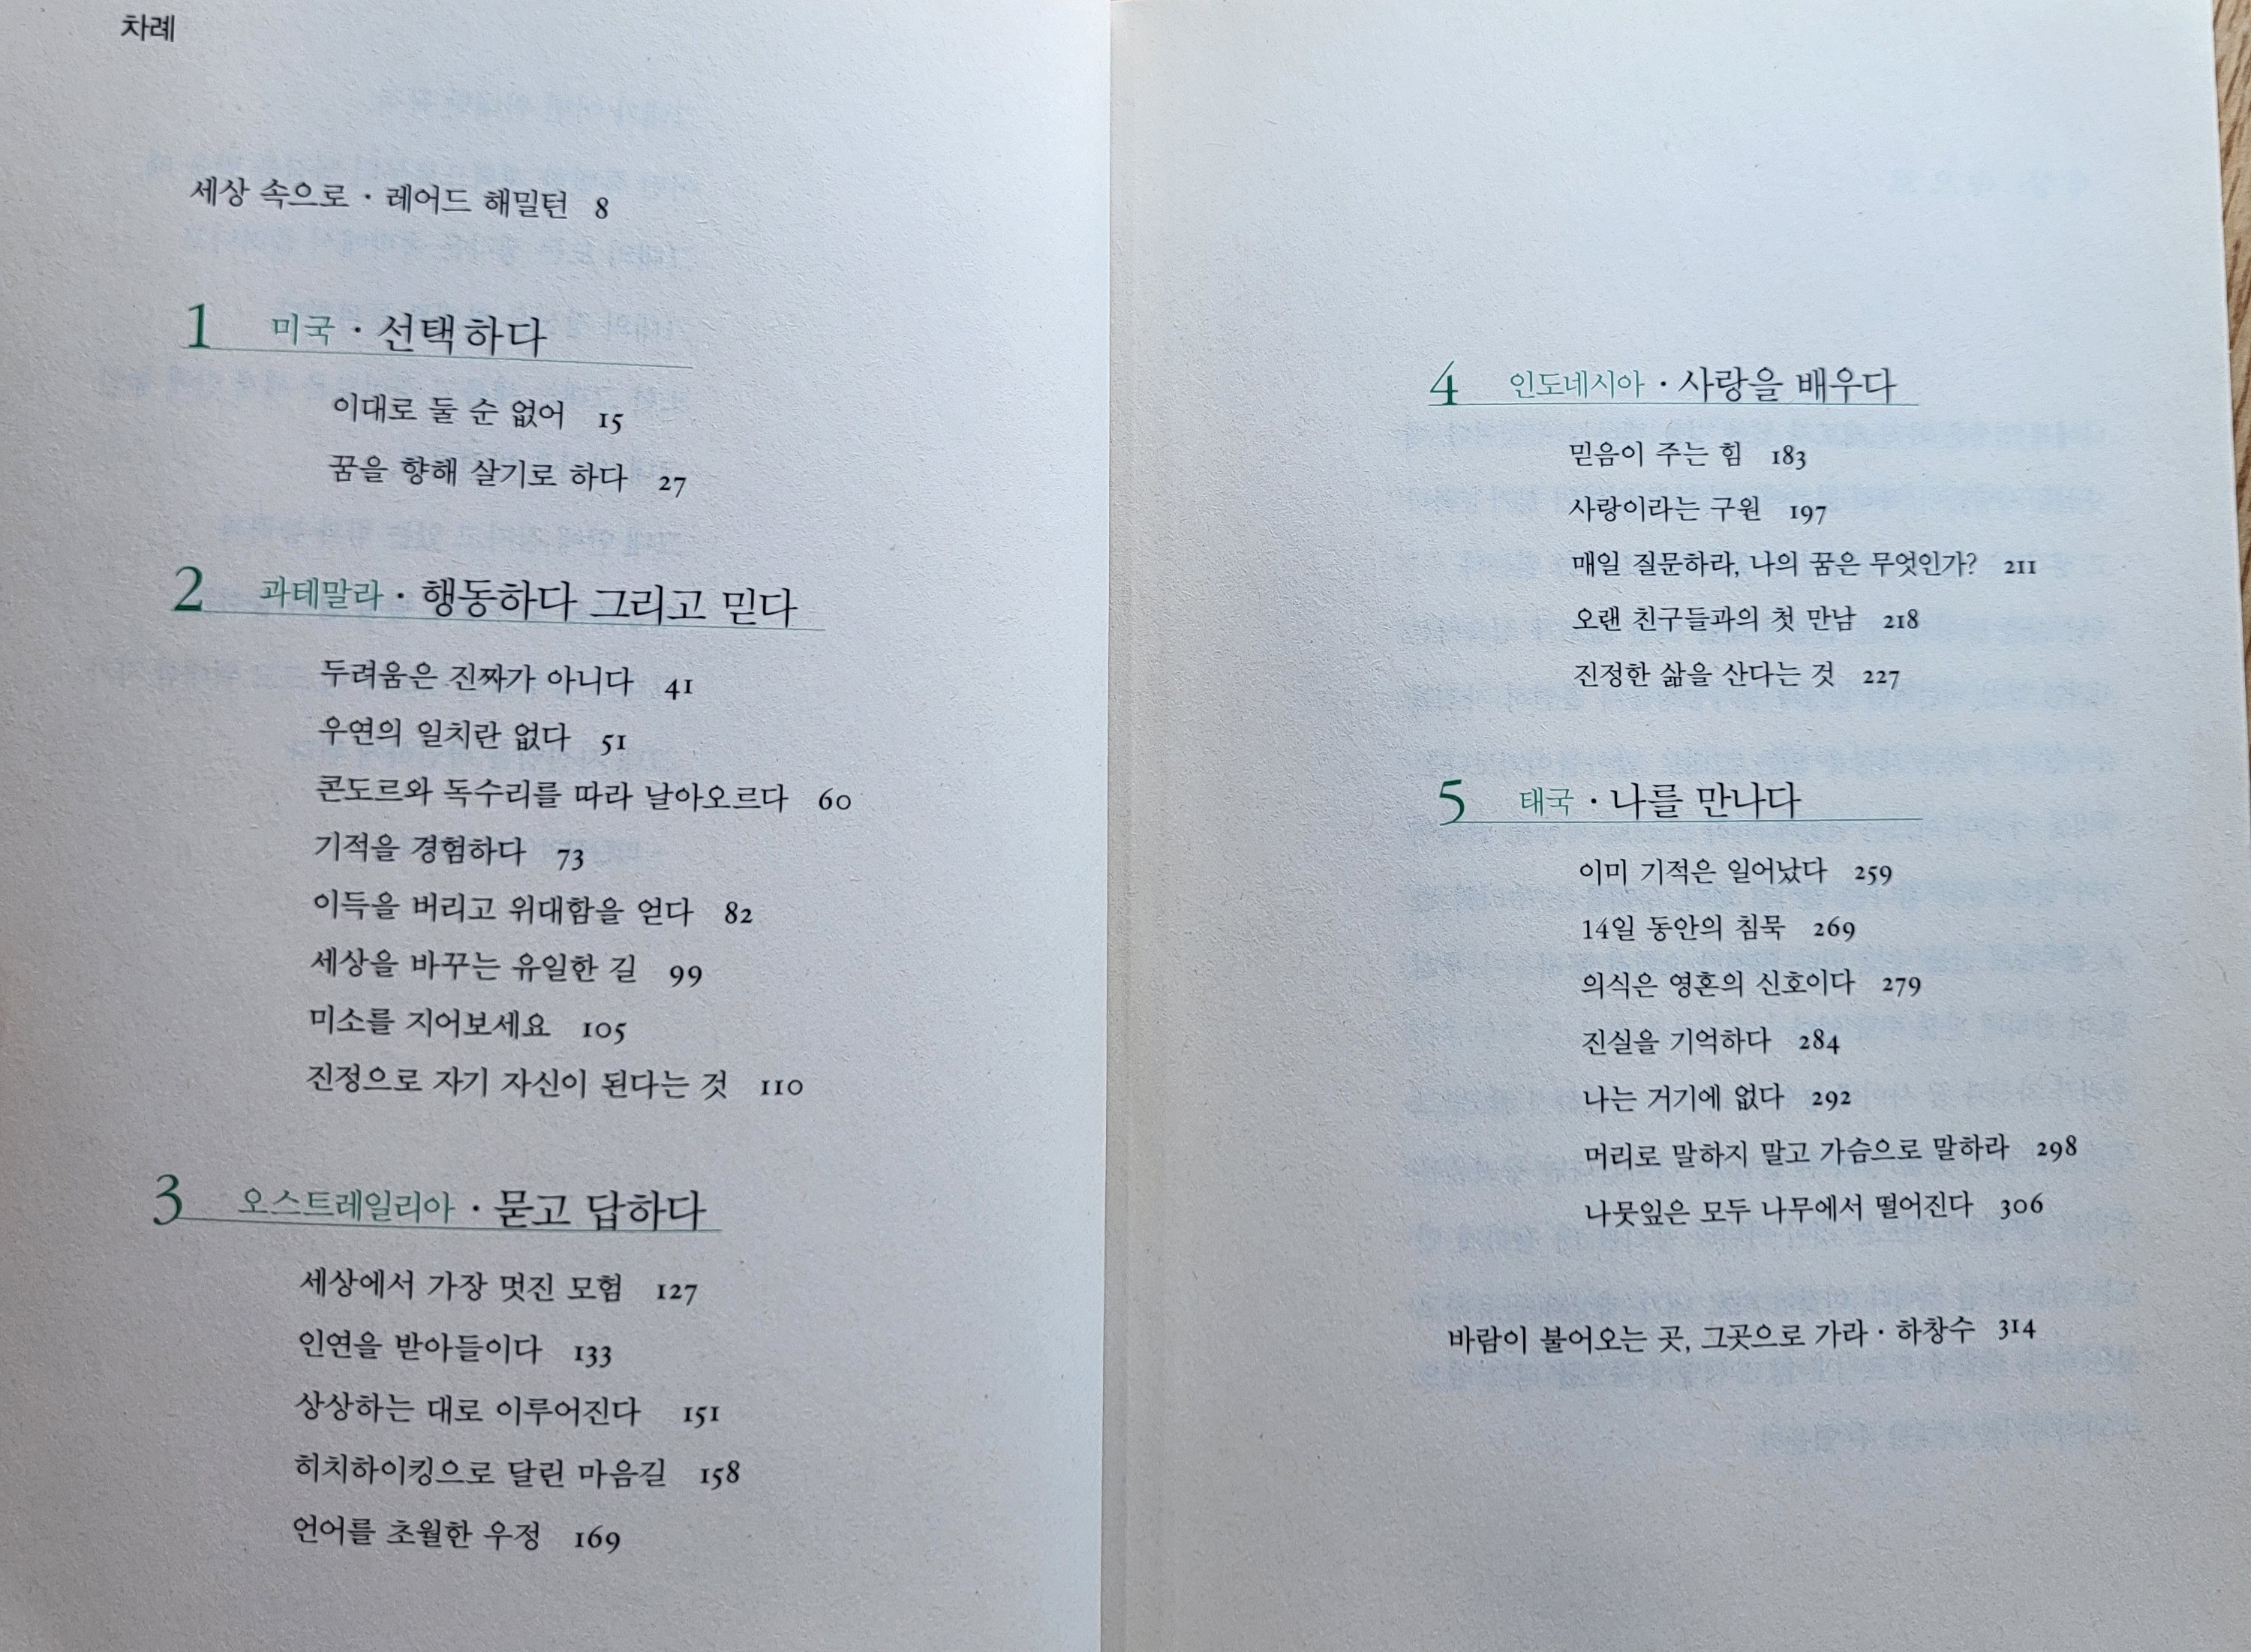 차례
세상 속으로 · 레어드 해밀턴 8
1 미국 · 선택하다
이대로 둘 순 없어 15
꿈을 향해 살기로 하다 27
2 과테말라 · 행동하다 그리고 믿다
두려움은 진짜가 아니다 41
우연의 일치란 없다 51
콘도르와 독수리를 따라 날아오르다 60
기적을 경험하다 73
이득을 버리고 위대함을 얻다 82
세상을 바꾸는 유일한 길 99
미소를 지어보세요 105
진정으로 자기 자신이 된다는 것 110
3 오스트레일리아 · 묻고 답하다
세상에서 가장 멋진 모험 127
인연을 받아들이다 133
상상하는 대로 이루어진다 151
히치하이킹으로 달린 마음길 158
언어를 초월한 우정 169
4 인도네시아 · 사랑을 배우다
믿음이 주는 힘 183
사랑이라는 구원 197
매일 질문하라, 나의 꿈은 무엇인가? 211
오랜 친구들과의 첫 만남 218
진정한 삶을 산다는 것 227
5 태국 · 나를 만나다
이미 기적은 일어났다 259
14일 동안의 침묵 269
의식은 영혼의 신호이다 279
진실을 기억하다 284
나는 거기에 없다 292
머리로 말하지 말고 가슴으로 말하라 298
나뭇잎은 모두 나무에서 떨어진다 306
바람이 불어오는 곳, 그곳으로 가라 · 하창수 314